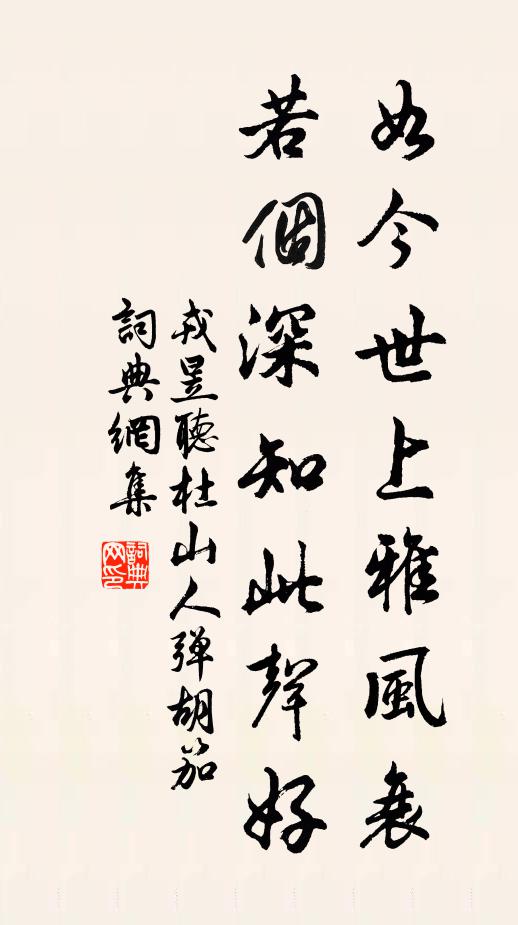 如今世上雅風衰
若個深知此聲好
戎昱聽杜山人弹胡笳
詞典網集
詞典网印